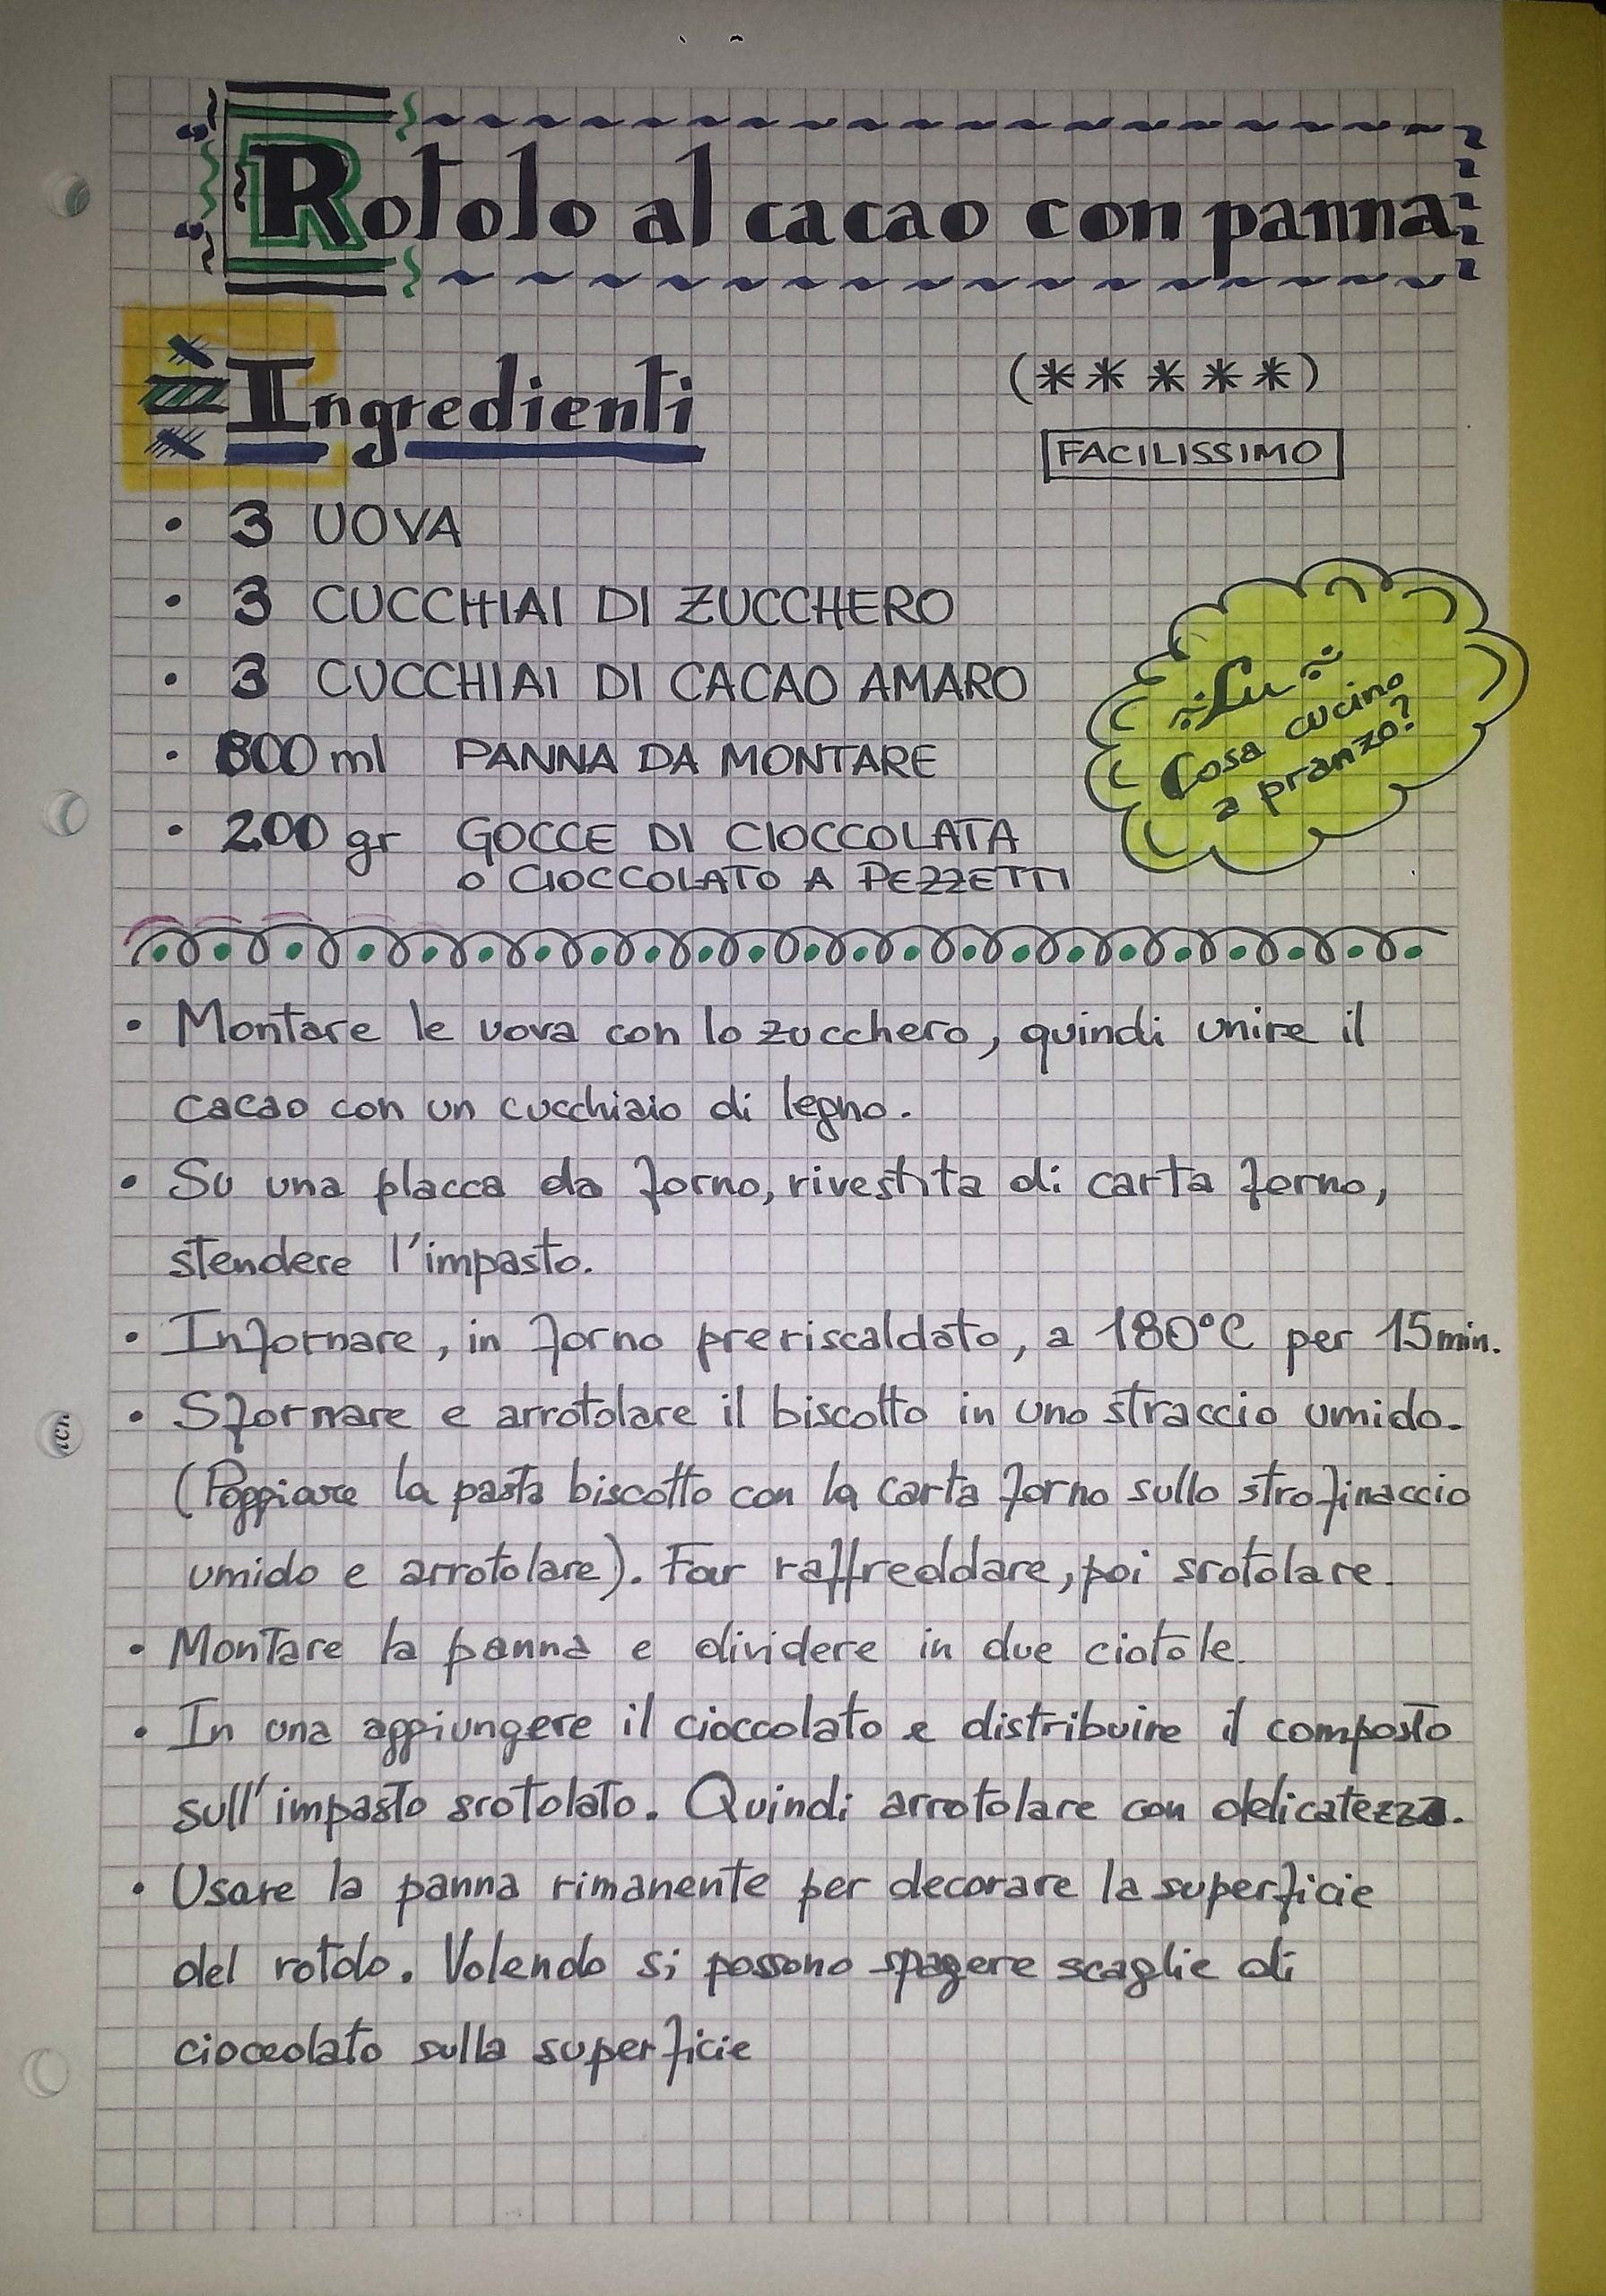 Rotolo al cacao con panna
Ingredienti
(*****)
FACILISSIMO
• 3 UOVA
• 3 CUCCHIAI DI ZUCCHERO
• 3 CUCCHIAI DI CACAO AMARO
• 800 ml PANNA DA MONTARE
• 200 gr GOCCE DI CIOCCOLATA
O CIOCCOLATO A PEZZETTI
Lu
Cosa cucino
a pranzo?
• Montare le uova con lo zucchero, quindi unire il
cacao con un cucchiaio di legno.
• Su una placca da forno, rivestita di carta forno,
stendere l'impasto.
• Infornare, in forno preriscaldato, a 180°C per 15 min.
• Sfornare e arrotolare il biscotto in uno straccio umido.
(Poggiare la pasta biscotto con la carta forno sullo strofinaccio
umido e arrotolare). Far raffreddare, poi srotolare.
• Montare la panna e dividere in due ciotole.
• In una aggiungere il cioccolato e distribuire il composto
sull'impasto srotolato. Quindi arrotolare con delicatezza.
• Usare la panna rimanente per decorare la superficie
del rotolo. Volendo si possono spagere scaglie di
cioccolato sulla superficie